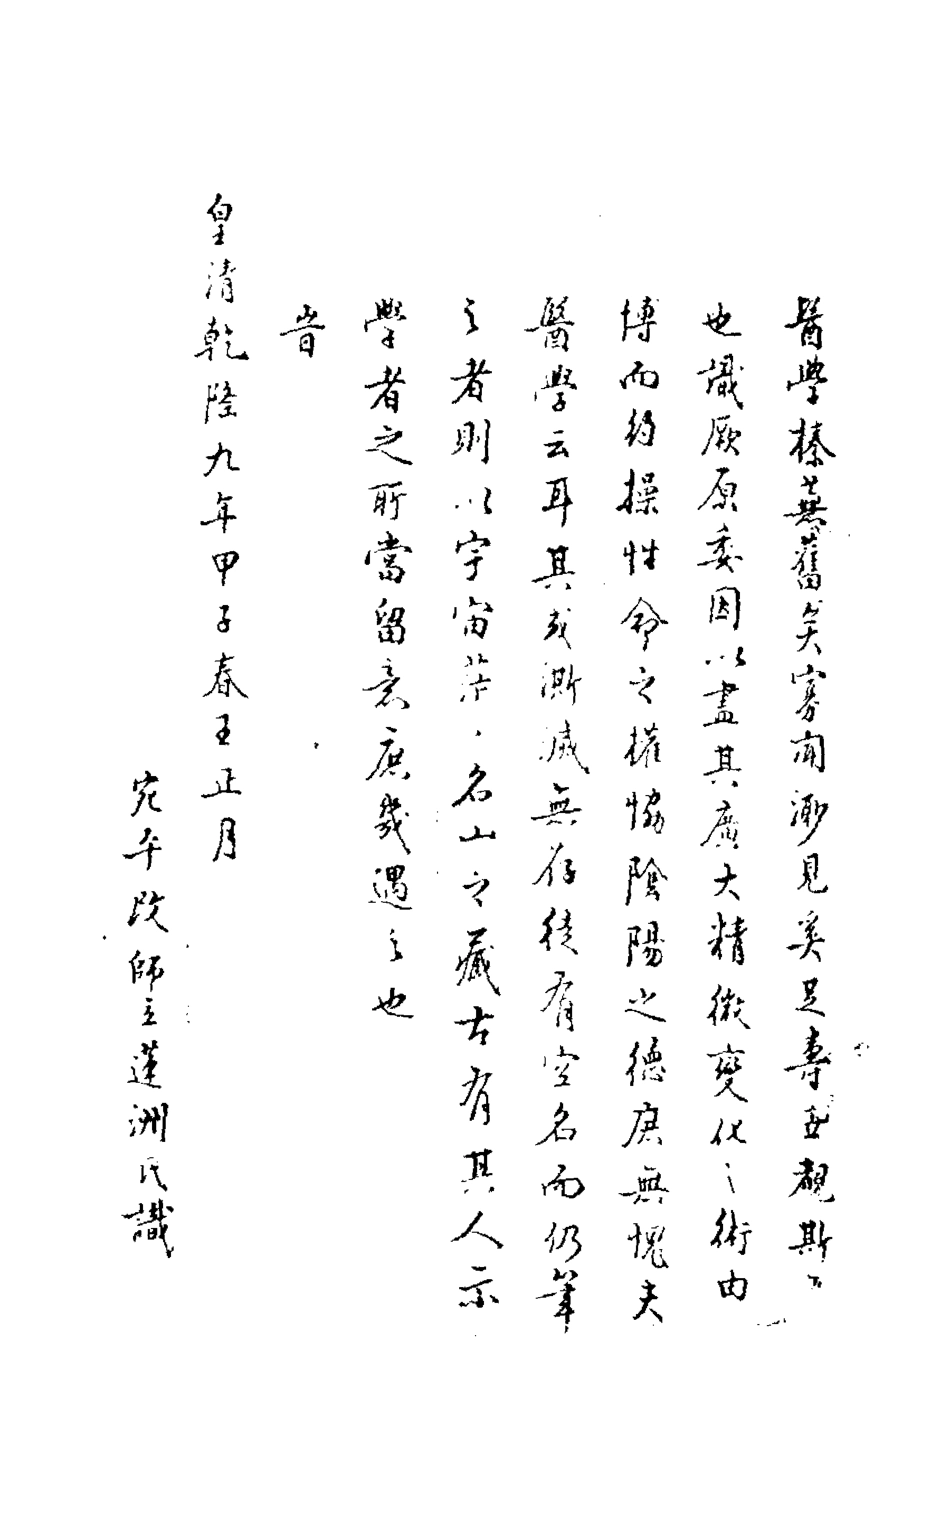 醫學榛蕪舊矣寡聞渺見奚足壽世觀斯
也識厥原委因以盡其廣大精微變化之術由
博而約操性命之權協陰陽之德庶無愧夫
醫學云耳其或澌滅無存徒有空名而仍筆
之者則以宇宙茫茫名山之藏古有其人亦
學者之所當留意庶幾遇之也
旹
皇清乾隆九年甲子春王正月
宛平改師立蓮洲氏識